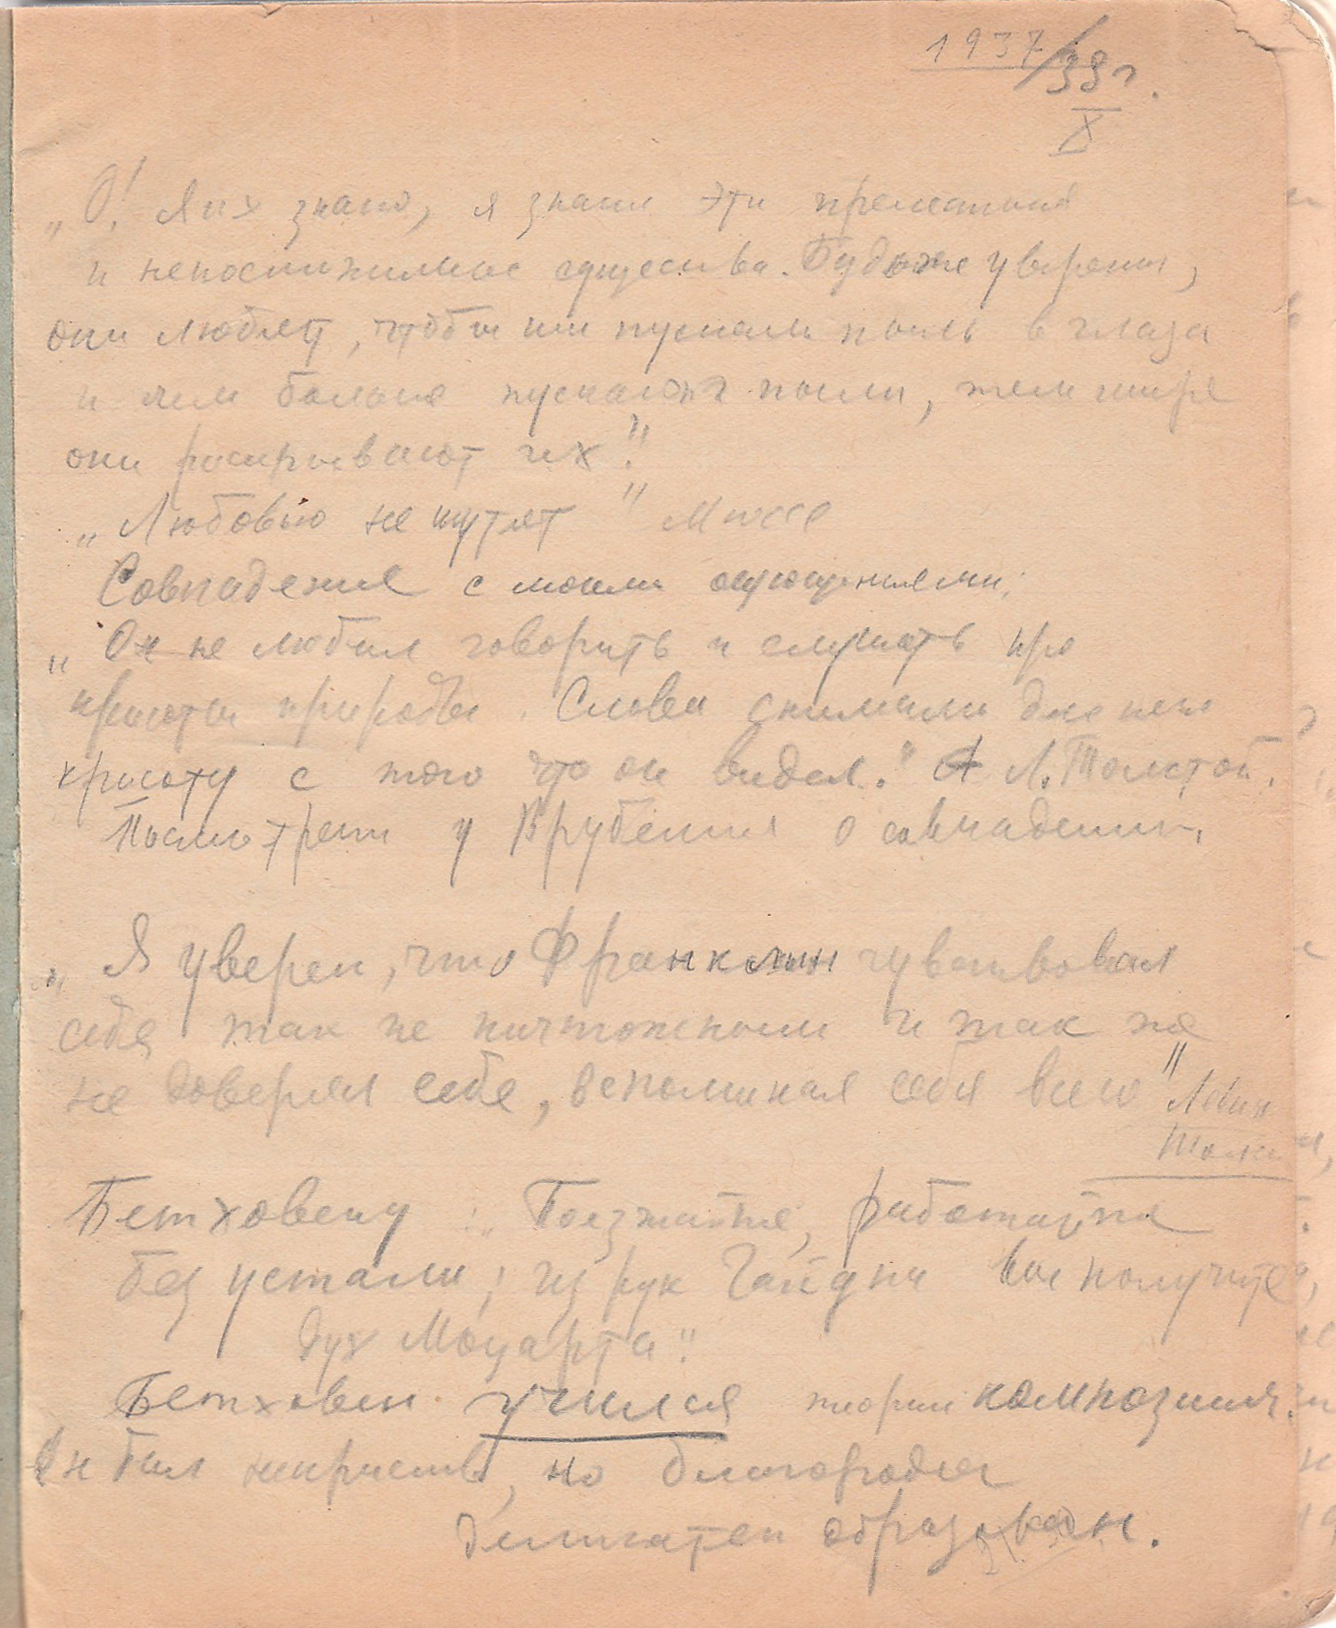 1937/38 г.
X
„О! Я их знаю, я знаю эти прелестные
и непостижимые существа. Будьте уверены,
они любят, чтобы им пускали пыль в глаза
и чем больше пускают пыли, тем шире
они раскрывают их."
„Любовью не шутят" Мюссе
Совпадения с моими ощущениями:
„Он не любил говорить и слушать про
красоты природы. Слова снимали для него
красоту с того что он видел." Л. Толстой.
Посмотреть у Врубеля о совпадении
„Я уверен, что Франклин чувствовал
себя так же ничтожным и так же
не доверял себе, вспоминая себя всего" Левин
Толст
Бетховену : „Поезжайте, работайте
без устали, из рук Гайдна вы получите
дух Моцарта."
Бетховен учился теории композиции.
Он был некрасив, но благороден
деликатен образован.